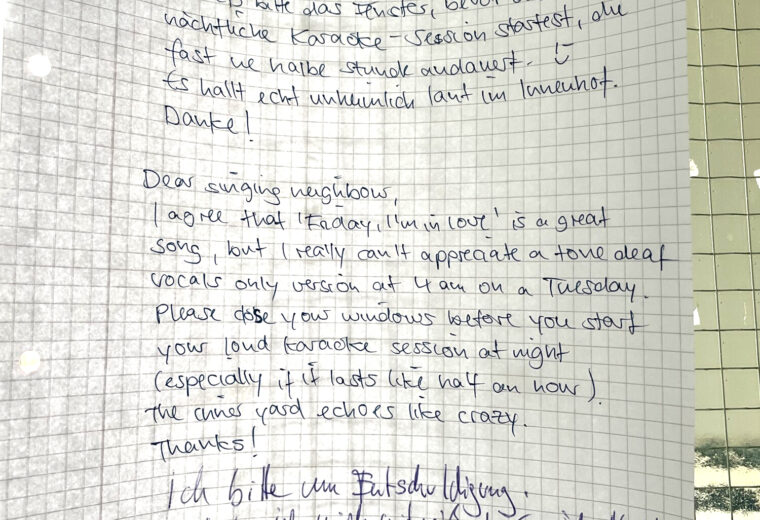 bitte das Fenster,
nächtliche Karaoke-Session startest, die
fast ne halbe Stunde andauert. :)
Es hallt echt unheimlich laut im Innenhof.
Danke!
Dear singing neighbour,
I agree that 'Friday, I'm in love' is a great
song, but I really can't appreciate a tone deaf
vocals only version at 4 am on a Tuesday.
Please close your windows before you start
your loud karaoke session at night
(especially if it lasts like half an hour).
The inner yard echoes like crazy.
Thanks!
Ich bitte um Entschuldigung.